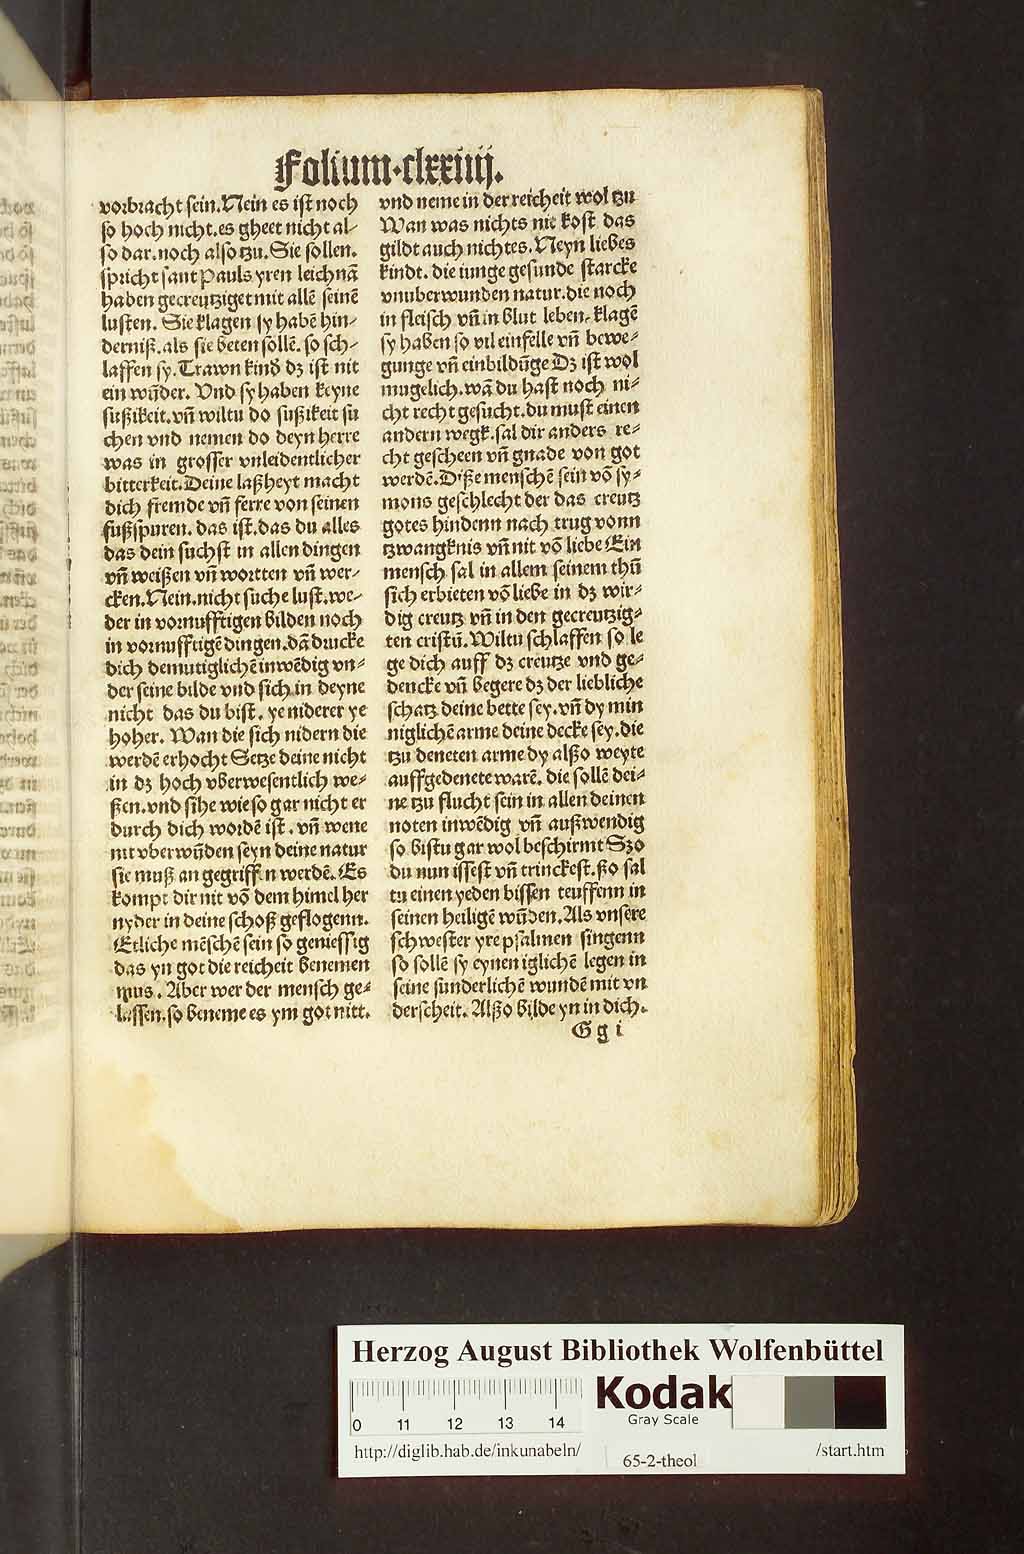 Folium·clxxiiij.
vorbracht sein. Nein es ist noch
so hoch nicht. es gheet nicht al⸗
so dar. noch also tzu. Sie sollen.
spricht sant Pauls yren leichnā
haben gecreutziget mit allē seinē
lusten. Sie klagen sy habē hin⸗
derniß. als sie beten sollē. so sch⸗
laffen sy. Trawn kind dz ist nit
ein wūder. Vnd sy haben keyne
sußikeit. vn̄ wiltu do sußikeit su
chen vnd nemen do deyn herre
was in grosser vnleidentlicher
bitterkeit. Deine laßheyt macht
dich fremde vn̄ ferre von seinen
fußspuren. das ist. das du alles
das dein suchst in allen dingen
vn̄ weißen vn̄ wortten vn̄ wer⸗
cken. Nein. nicht suche lust. we⸗
der in vornufftigen bilden noch
in vornufftigē dingen. dā drucke
dich demutiglichē inwēdig vn⸗
der seine bilde vnd sich in deyne
nicht das du bist. ye niderer ye
hoher. Wan die sich nidern die
werdē erhocht Setze deine nicht
in dz hoch vberwesentlich we⸗
ßen. vnd sihe wie so gar nicht er
durch dich wordē ist. vn̄ wene
nit vberwūden seyn deine natur
sie muß an gegriffen werdē. Es
kompt dir nit vō dem himel her
nyder in deine schoß geflogenn.
Etliche mēschē sein so geniessig
das yn got die reicheit benemen
mus. Aber wer der mensch ge⸗
lassen. so beneme es ym got nitt.
vnd neme in der reicheit wol tzu
Wan was nichts nit kost das
gildt auch nichtes. Neyn liebes
kindt. die iunge gesunde starcke
vnuberwunden natur. die noch
in fleisch vn̄ in blut leben. klagē
sy haben so vil einfelle vn̄ bewe⸗
gunge vn̄ einbildūge Dz ist wol
mugelich. wā du hast noch ni⸗
cht recht gesucht. du must einen
andern wegk. sal dir anders re⸗
cht gescheen vn̄ gnade von got
werdē. Diße menschē sein vō sy⸗
mons geschlecht der das creutz
gotes hindenn nach trug vonn
tzwangknis vn̄ nit vō liebe Ein
mensch sal in allem seinem thū
sich erbieten vō liebe in dz wir⸗
dig creutz vn̄ in den gecreutzig⸗
ten cristū. Wiltu schlaffen so le
ge dich auff dz creutze vnd ge⸗
dencke vn̄ begere dz der liebliche
schatz deine bette sey. vn̄ dy min
niglichē arme deine decke sey. die
tzu deneten arme dy alßo weyte
auffgedenete warē. die sollē dei⸗
ne tzu flucht sein in allen deinen
noten inwēdig vn̄ außwendig
so bistu gar wol beschirmt Szo
du nun issest vn̄ trinckest. ßo sal
tu einen yeden bissen teuffenn in
seinen heiligē wūden. Als vnsere
schwester yre psalmen singenn
so sollē sy eynen iglichē legen in
seine sunderlichē wundē mit vn
derscheit. Alßo bilde yn in dich.
G g i
Herzog August Bibliothek Wolfenbüttel
0 11 12 13 14
Kodak
Gray Scale
http://diglib.hab.de/inkunabeln/
65-2-theol
/start.htm